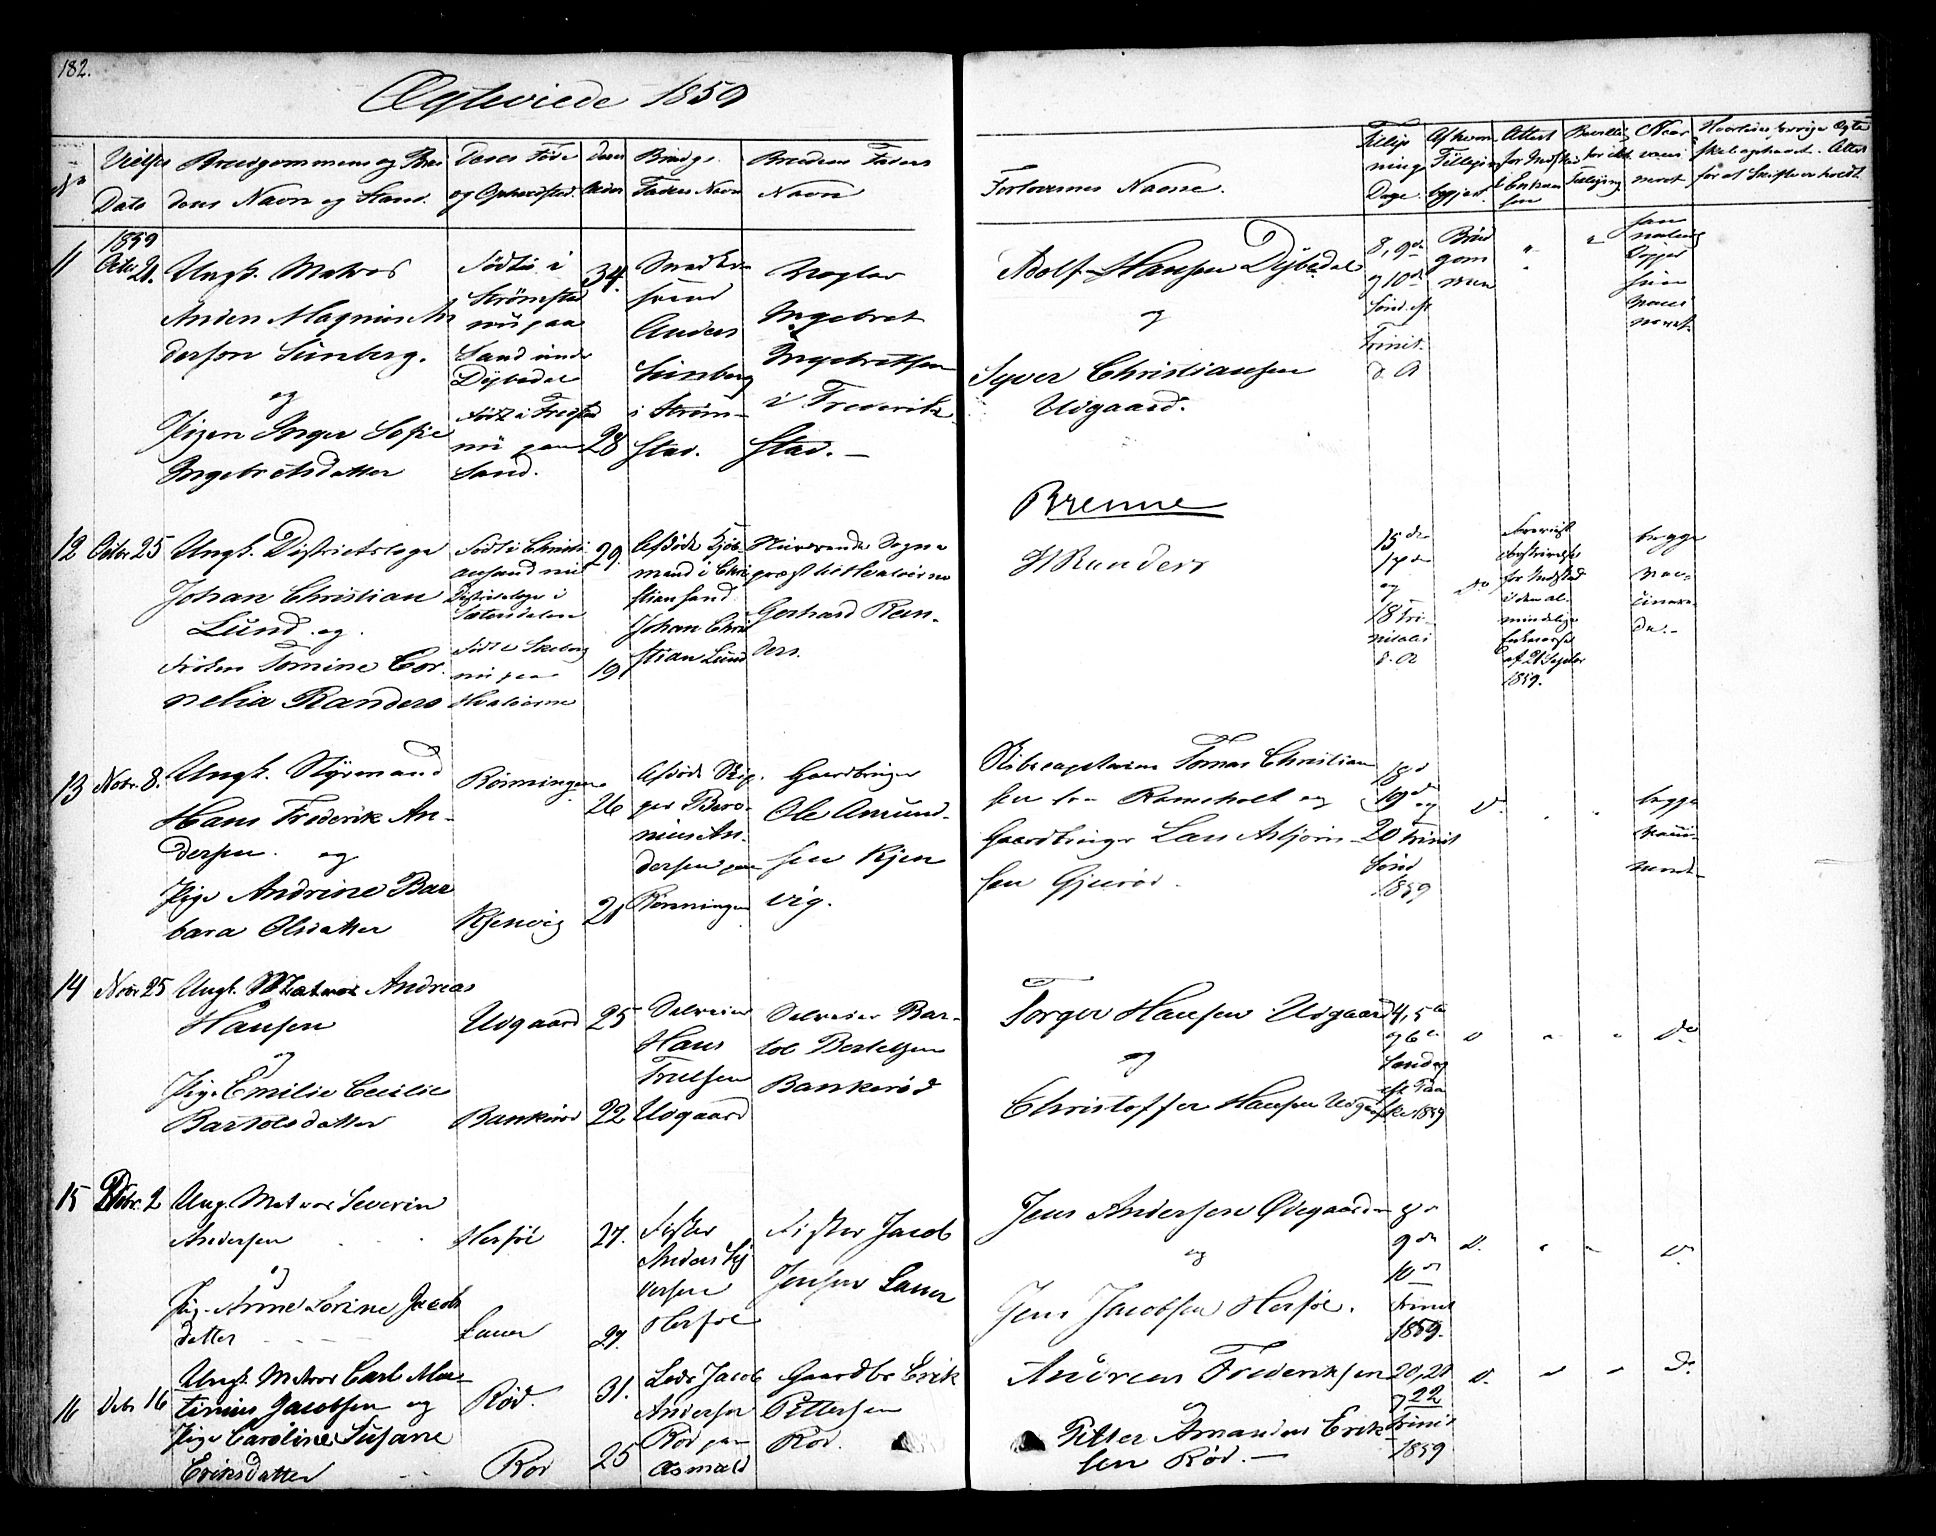 182.
Ægteviede 1859
Vielses Dato
Brudgommens og Brudens Navn og Stand.
Deres Føde og Opholdsted.
Deres Alder
Brudg. Faders Navn
Brudens Faders Navn
Forlovernes Navne.
Tillysnings Dage.
Af hvem Tillysning begjært.
Attest for Indsk. i Enkekassen
Bevilling for ikke Tillysning
11
1859
Octbr 21.
Ungk. Matros
Anders Magnus An
derson Sunberg.
og
Pigen Inger Sofie
Ingebretsdatter
Født i
Strømstad
nu paa
Sand under
Dybedal
Født i Fredstad
nu paa
Sand.
34.
28
Snedker
svend
Anders
Sunberg
i Strøm-
stad.
Ingebret
Ingebretsen
i Frederik-
stad. —
Adolf Hansen Dybedal
og
Syver Christiansen
Udgaard.
8, 9de
og 10de
Sønd. eft
Trinit.
d. A
Brud
gom
men
12
Octbr 25
Ungk. Districtslæge
Johan Christian
Lund og
Frøken Tomine Cor
nelia Randers
Født i Christi
ansand nu
Districtslæge i
Sætersdalen
Født i Skeberg
nu paa
Hvaløerne
29.
19
Afdøde Kjøb
mand i Chri
stiansand
Johan Chri
stian Lund
Nuværende Sogne
præst til Hvaløerne
Gerhard Ran-
ders.
Brenne
H Randers
15de
17de
og
18 Tri-
nitatis
d. A
do
for Indskud
i den al-
mindelige
Enkekasse
af 21 Septbr
1859.
begge
nær-
være-
de.-
13
Novbr. 8.
Ungk. Styrmand
Hans Frederik An-
dersen og
Pige Andrine Bar
bara Olsdatter
Rønningen
Kjenvig
26
21
Afdøde Skip-
per
Andersen paa
Rønningen
Gaardbruger
Ole Amund-
sen Kjen
vig.
Skibscaptain Tomas Christian
sen og
Gaardbruger Lars Asbjørn-
sen Gjurød.
18d
19d og
20 Trinit
Sønd
1859
d.
begge
14
Novbr 25
Ungk. Matros Andreas
Hansen
og
Pige Emilie Cecilie
Bartolsdatter
Udgaard
Bankerød
25
22
Selveier
Hans
Truelsen
Udgaard
Selveier Bar-
tol Bertelsen
Bankerød
Torger Hansen Udgaard
og
Christoffer Hansen Udgaard
4, 5te
og 6te
Søndag
eft Paa
ske 1859
d
do
15
Decbr. 2
Ungk. Matros Severin
Andersen
og
Pige Anne Lovine Jacobs
datter
Herføl
Lauer
27.
27.
Fisker
Anders Sy
versen
Herføl
Fisker Jacob
Jensen Lauer
Jens Andersen Ødegaarden
og
Jens Jacobsen Herføl.
8de
9de
10de
Trinit
1859.
d.
do
16
Decbr 16
Ungk. Matros Carl Mar-
tinius Jacobsen og
Pige Caroline Susane
Eriksdatter
Rød.
Rød
31.
25
Lods Jacob
Andersen
Rød paa
Asmald
Gaardbr Erik
Pettersen
Rød.
Andreas Frederiksen
og
Petter Amandus Erik
sen Rød. —
20, 21
og 22
Trinit
1859
d.
do